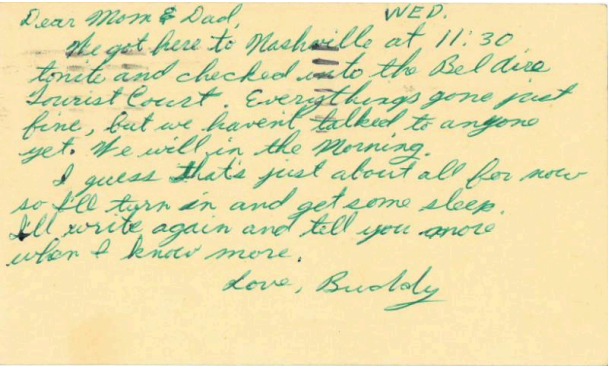 Dear Mom & Dad, WED.
We got here to Nashville at 11:30
tonite and checked into the Bel aire
Tourist Court. Everythings gone just
fine, but we haven't talked to anyone
yet. We will in the Morning.
I guess that's just about all for now
so I'll turn in and get some sleep.
I'll write again and tell you more
when I know more.
Love, Buddy